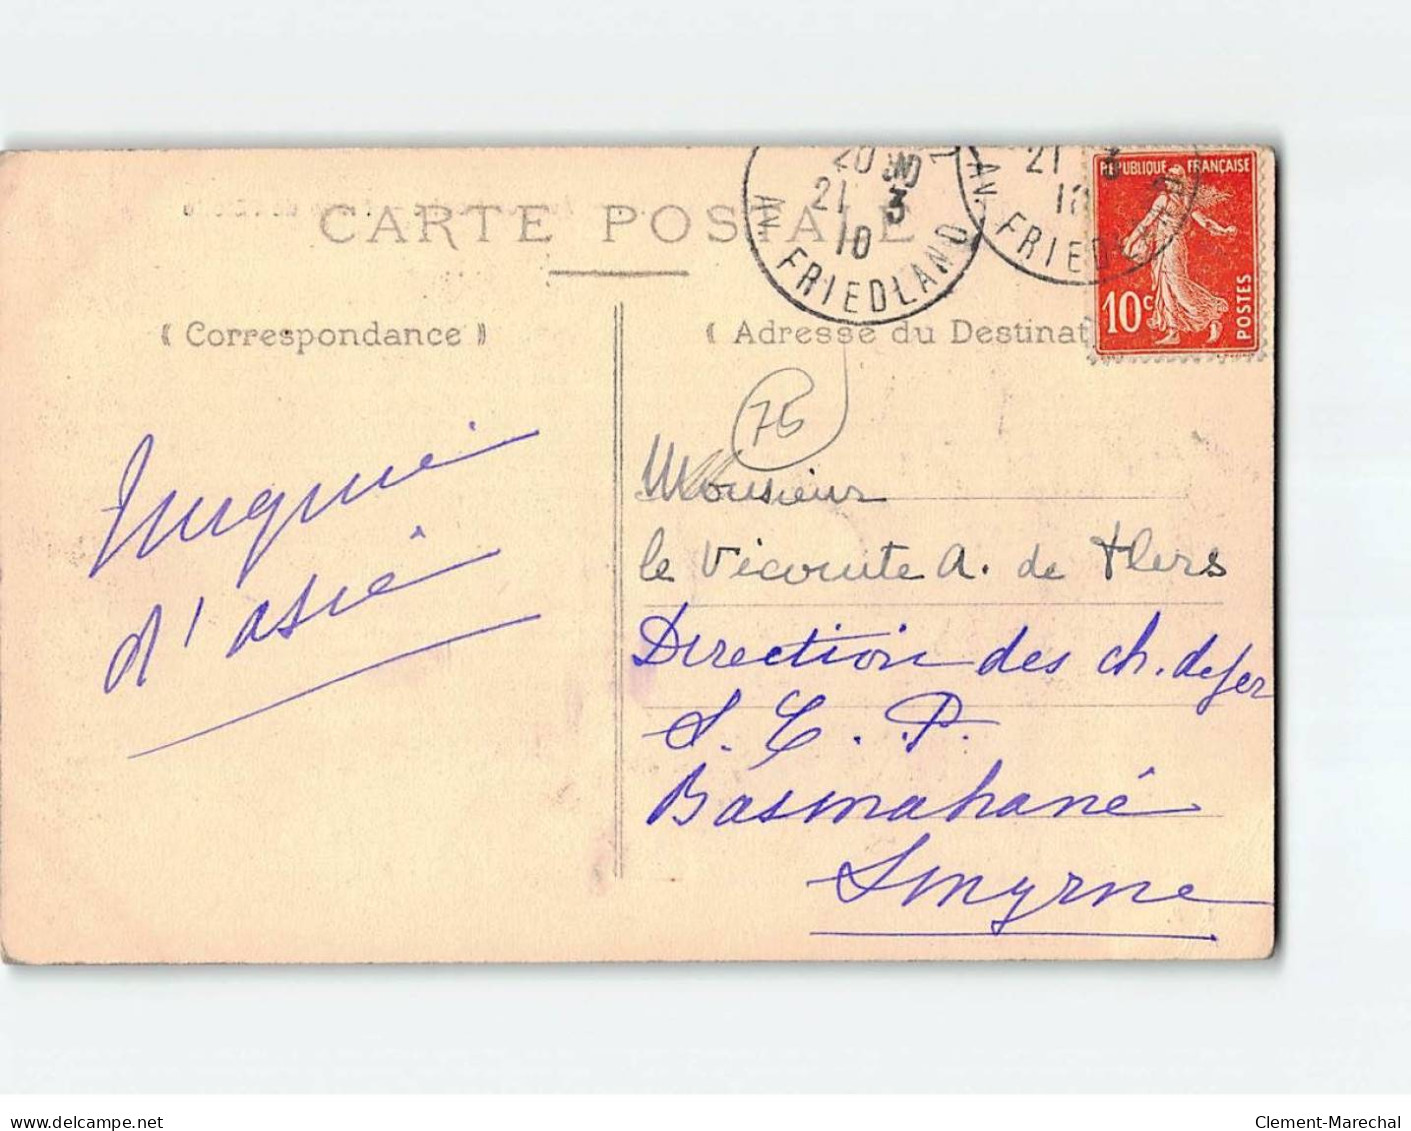 CARTE POSTALE
« Correspondance »
« Adresse du Destinat
20 30
21 3
10
AV. FRIEDLAND
21 3
10
AV. FRIEDLAND
RÉPUBLIQUE FRANÇAISE
10c
POSTES
75
Turquie
d'asie
Monsieur
le Vicomte A. de Flers
Direction des ch. de fer
S. C. P.
Basmahané
Smyrne
delcampe.net
Clement-Marechal